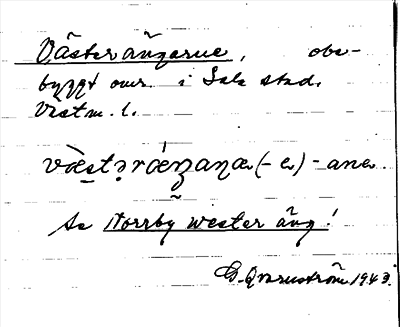 Västerängarne, obe-
byggt omr. i Sala stad.
Västm. l.
væstəræŋana (-e) -ane.
Se Norrby Wester äng!
G. Qvarnström 1943.